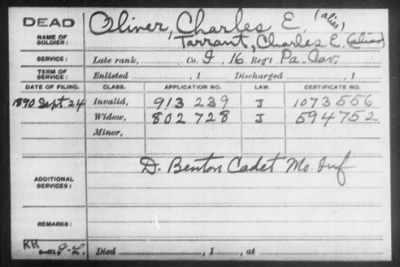 DEAD
Oliver, Charles E. (alias)
NAME OF SOLDIER:
Tarrant, Charles E. (alias)
SERVICE:
Late rank, Co. I, 16 Regt Pa. Cav.
TERM OF SERVICE:
Enlisted , 1 Discharged , 1
DATE OF FILING. CLASS. APPLICATION NO. LAW. CERTIFICATE NO.
1890 Sept 24 Invalid, 913 239 J 1073556
Widow, 802 728 J 594752
Minor,
D. Benton Cadet Mo. Inf
ADDITIONAL SERVICES:
REMARKS:
Died , 1 , at